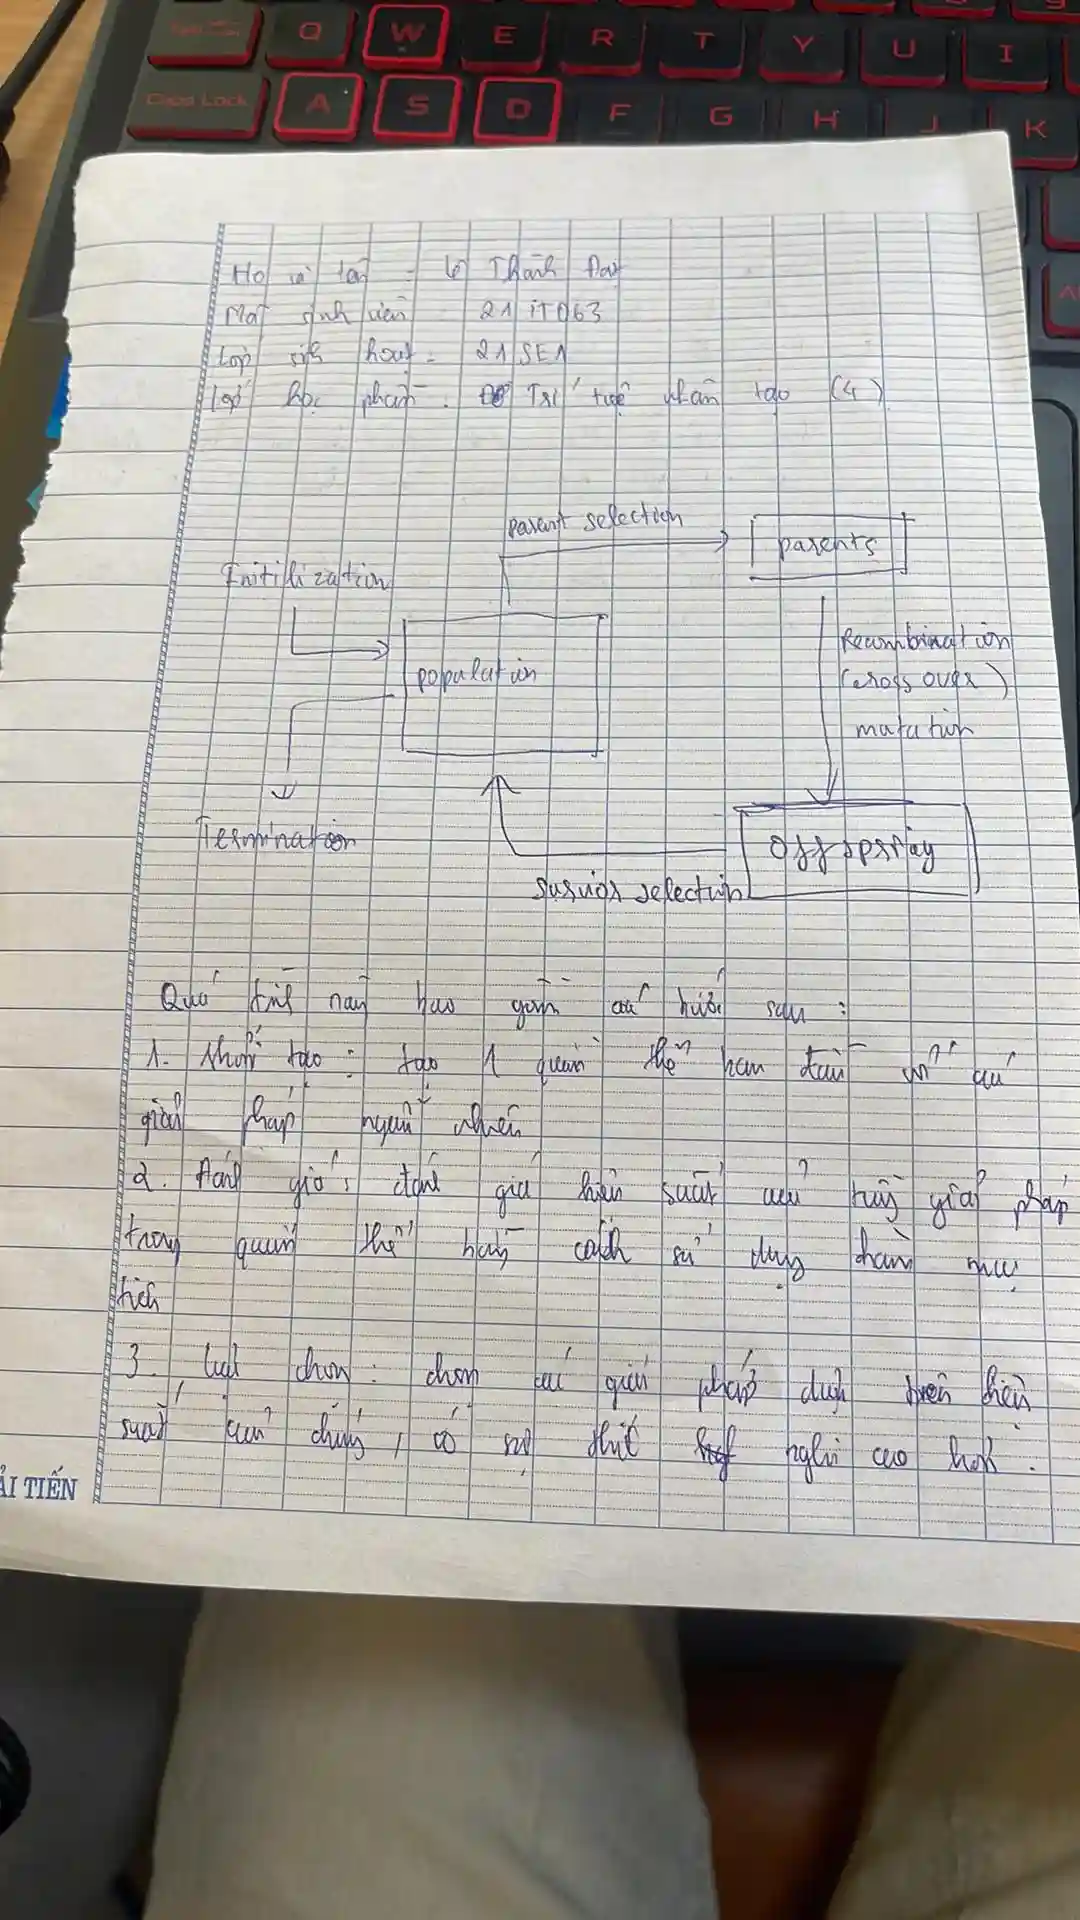 Q W E R T Y U I
Caps Lock A S D F G H J K
Họ và tên : Lê Thành Đạt
Mã sinh viên 21IT063
Lớp sinh hoạt - 21SE1
Lớp học phần : Trí tuệ nhân tạo (4)
parent selection
parents
Initilization
Recombination
population
(cross over)
mutation
Termination
offspsring
survior selection
Quá trình này bao gồm các bước sau :
1. Khởi tạo : tạo 1 quần thể ban đầu với các
giải pháp ngẫu nhiên
2. Đánh giá : đánh giá hiệu suất của từng giải pháp
trong quần thể bằng cách sử dụng hàm mục
tiêu
3. Lựa chọn : chọn các giải pháp dựa trên hiệu
suất của chúng, có sự thích nghi cao hơn.
ẢI TIẾN